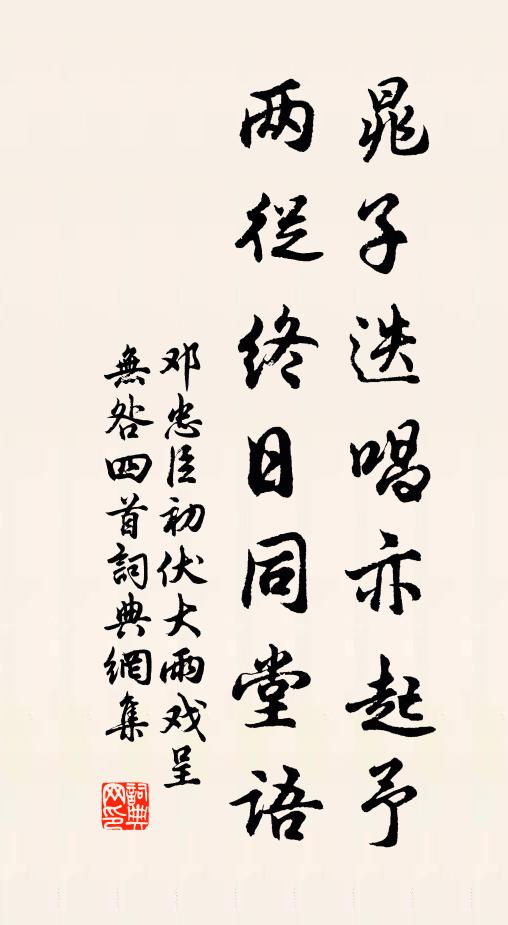 晁子迭唱亦起予
两従终日同堂語
邓忠臣初伏大雨戏呈
無咎四首詞典網集
詞典网印